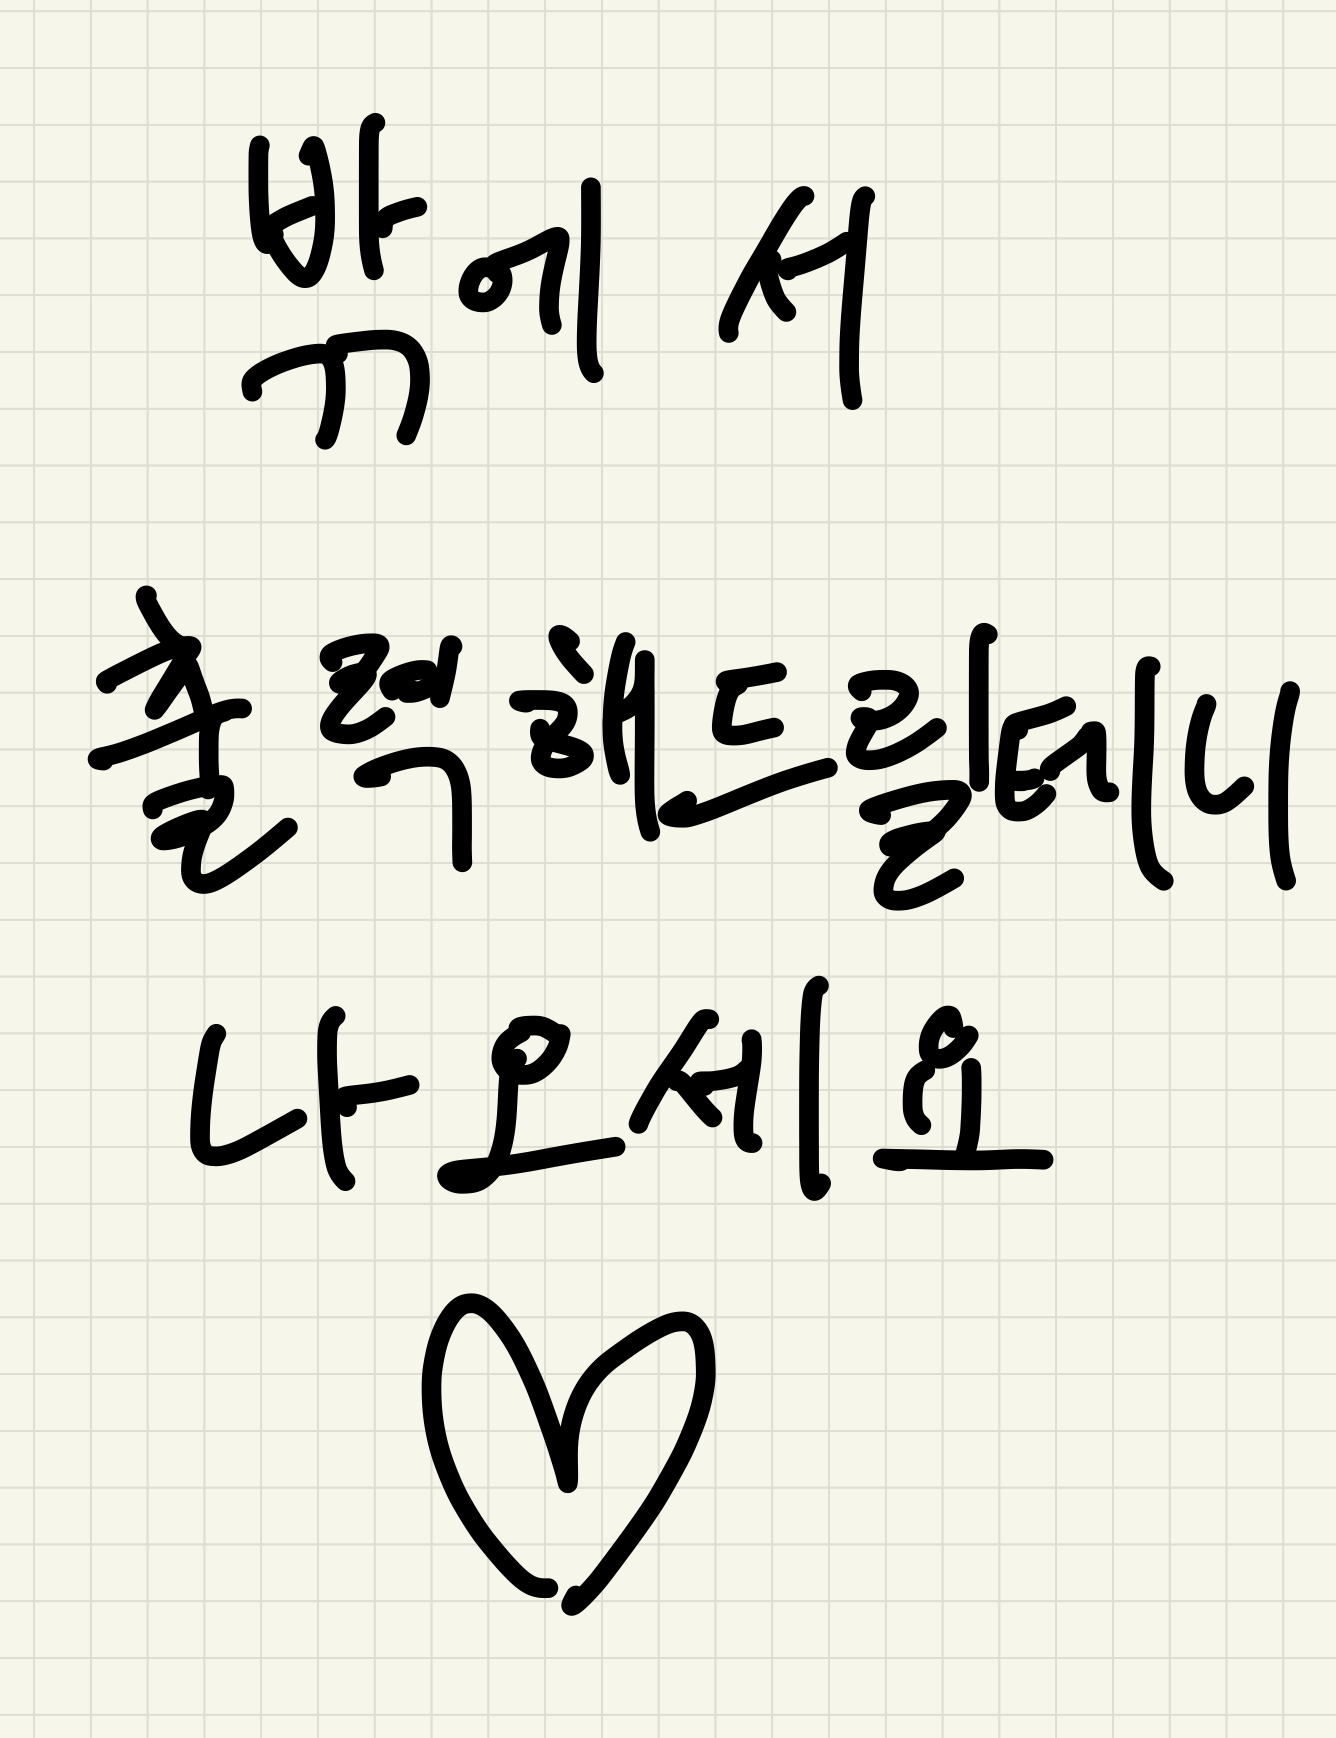 밖에서
출력해드릴테니
나오세요